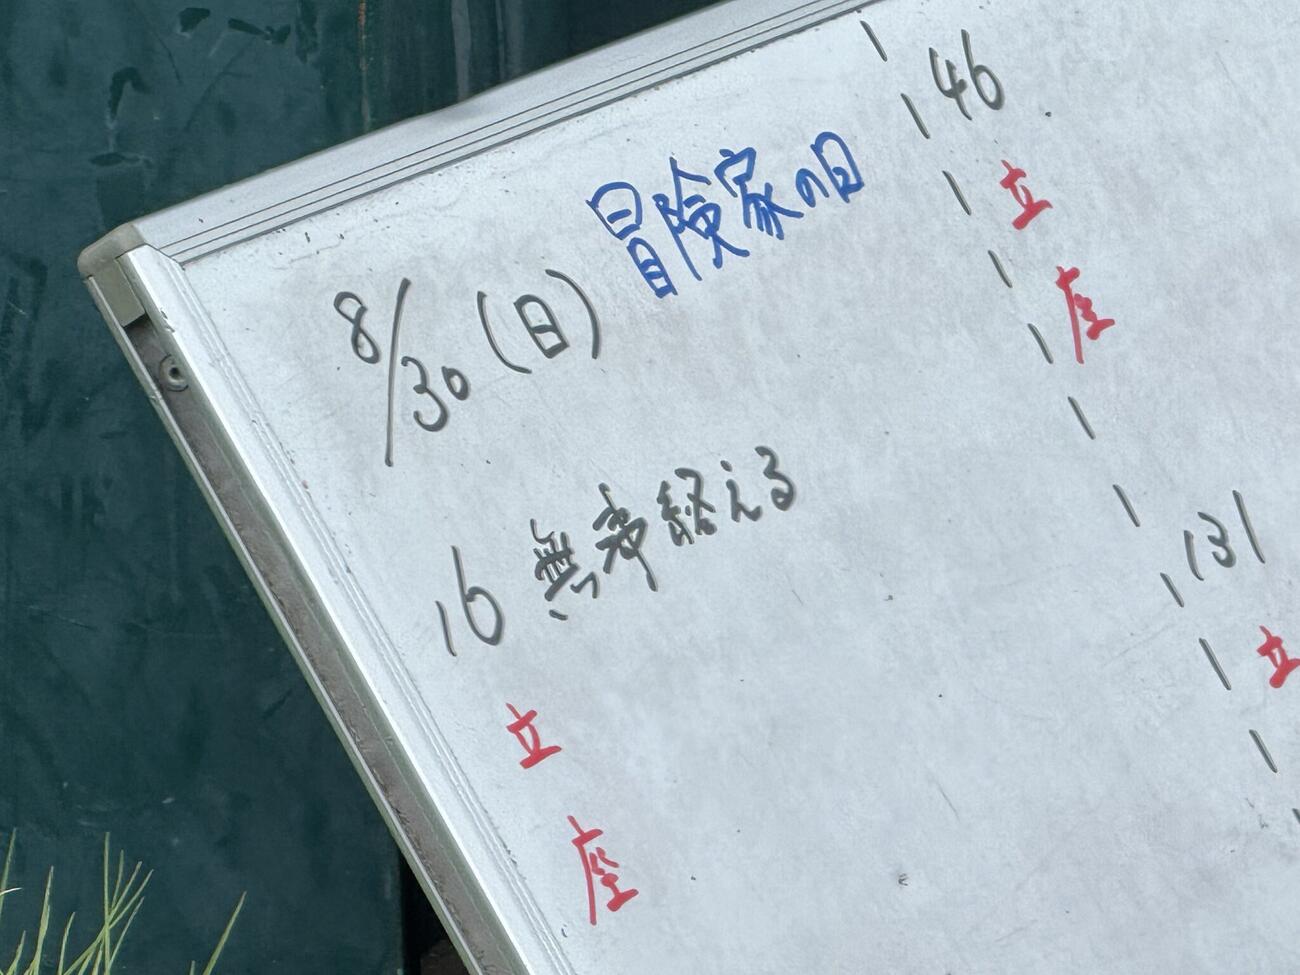 8/30(日) 冒険家の日
16 無事終える
立
座
46
立
座
131
立